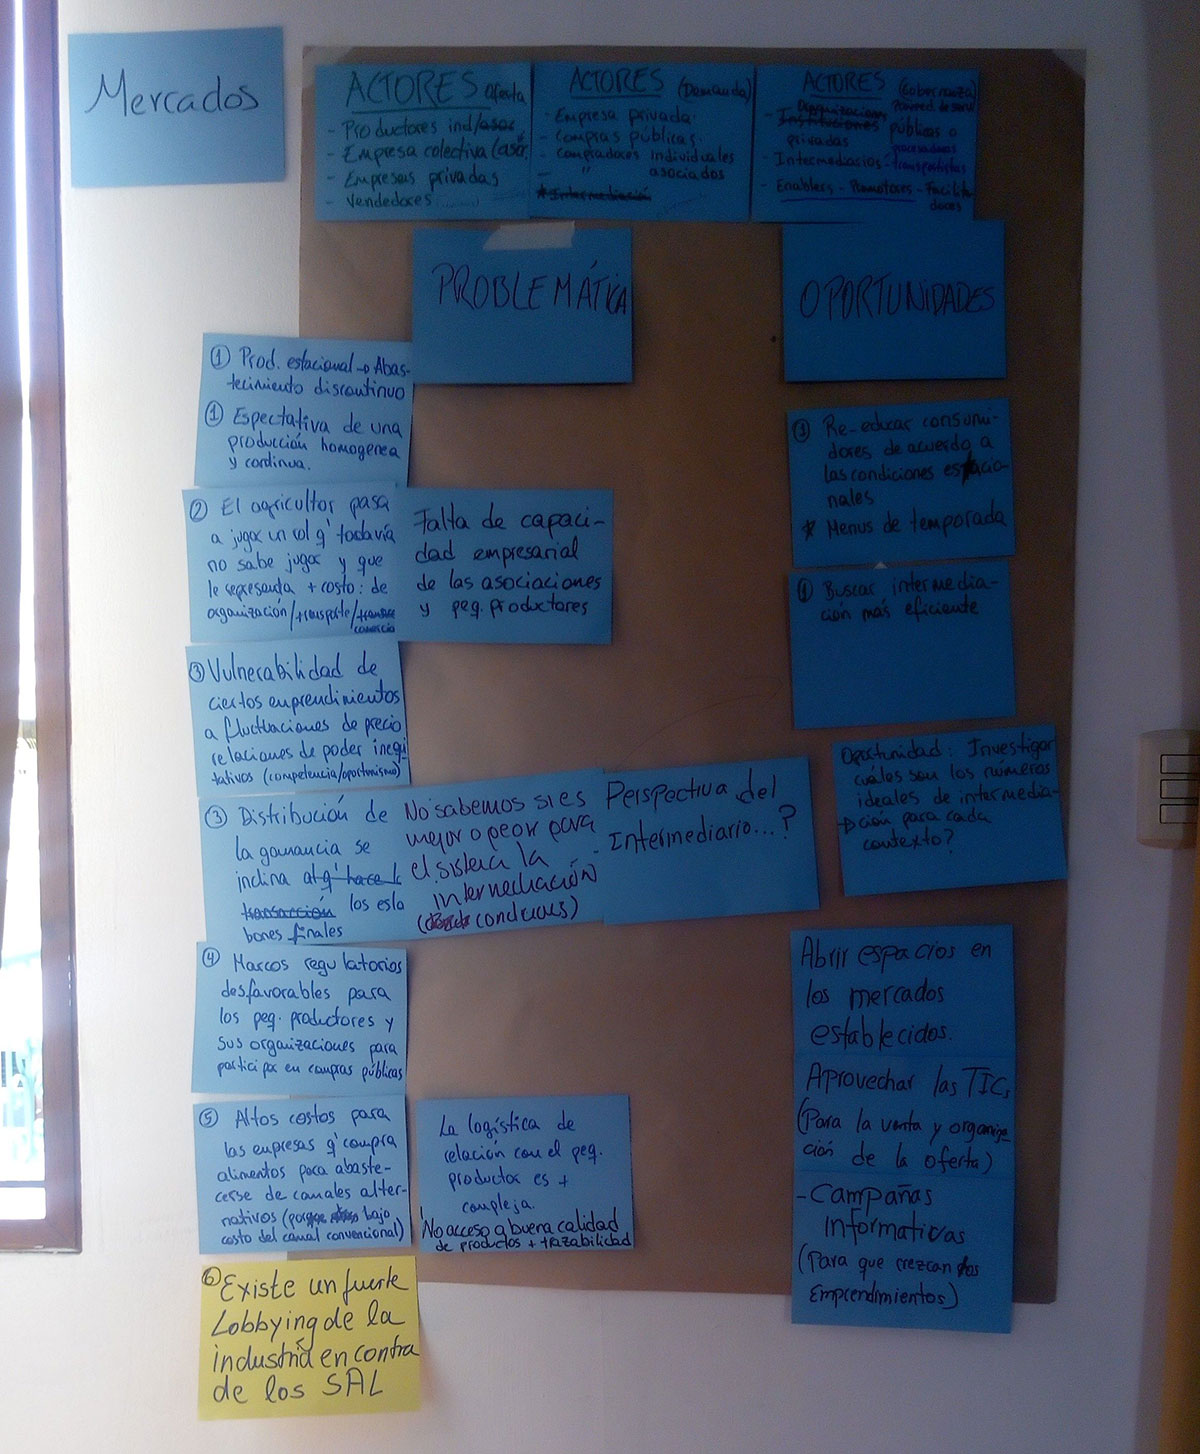 Mercados
ACTORES Oferta
- Productores ind/asoc
- Empresa colectiva (asó
- Empresas privadas
- Vendedores ........
ACTORES (Demanda)
- Empresa privada
- Compras públicas
- Compradores individuales
- " asociados
* Intermediación
ACTORES (Gobernanza)
Organizaciones
- Instituciones públicas o
privadas
- Intermediarios - transportistas
- Enablers - Promotores - Facilita
dores
PROBLEMÁTICA
OPORTUNIDADES
① Prod. estacional → Abas-
tecimiento discontinuo
① Espectativa de una
producción homogenea
y continua.
② El agricultor pasa
a jugar un rol q' todavía
no sabe jugar y que
le representa + costo: de
organización/transporte/
comercio
Falta de capaci-
dad empresarial
de las asociaciones
y peq. productores
③ Vulnerabilidad de
ciertos emprendimientos
a fluctuaciones de precio
relaciones de poder inequi
tativos (competencia/oportunismo)
③ Distribución de
la ganancia se
inclina al q' hace l
transacción los esla
bones finales
No sabemos si es
mejor o peor para
el sistema la
intermediación
(conducus)
Perspectiva del
Intermediario...?
④ Marcos regulatorios
desfavorables para
los peq. productores y
sus organizaciones para
participar en compras públicas
⑤ Altos costos para
las empresas q' compra
alimentos para abaste-
cerse de canales alter-
nativos (porque bajo
costo del canal convencional)
La logística de
relación con el peq.
productor es +
compleja.
No acceso a buena calidad
de productos + trazabilidad
⑥ Existe un fuerte
Lobbying de la
industria en contra
de los SAL
① Re-educar consumi-
dores de acuerdo a
las condiciones estacio-
nales
* Menus de temporada
① Buscar intermedia-
ción más eficiente
Oportunidad: Investigar
cuáles son los números
ideales de intermedia-
ción para cada
contexto?
Abrir espacios en
los mercados
establecidos.
Aprovechar las TICs
(Para la venta y organiza-
ción de la oferta)
- Campañas
informativas
(Para que crezcan los
Emprendimientos)